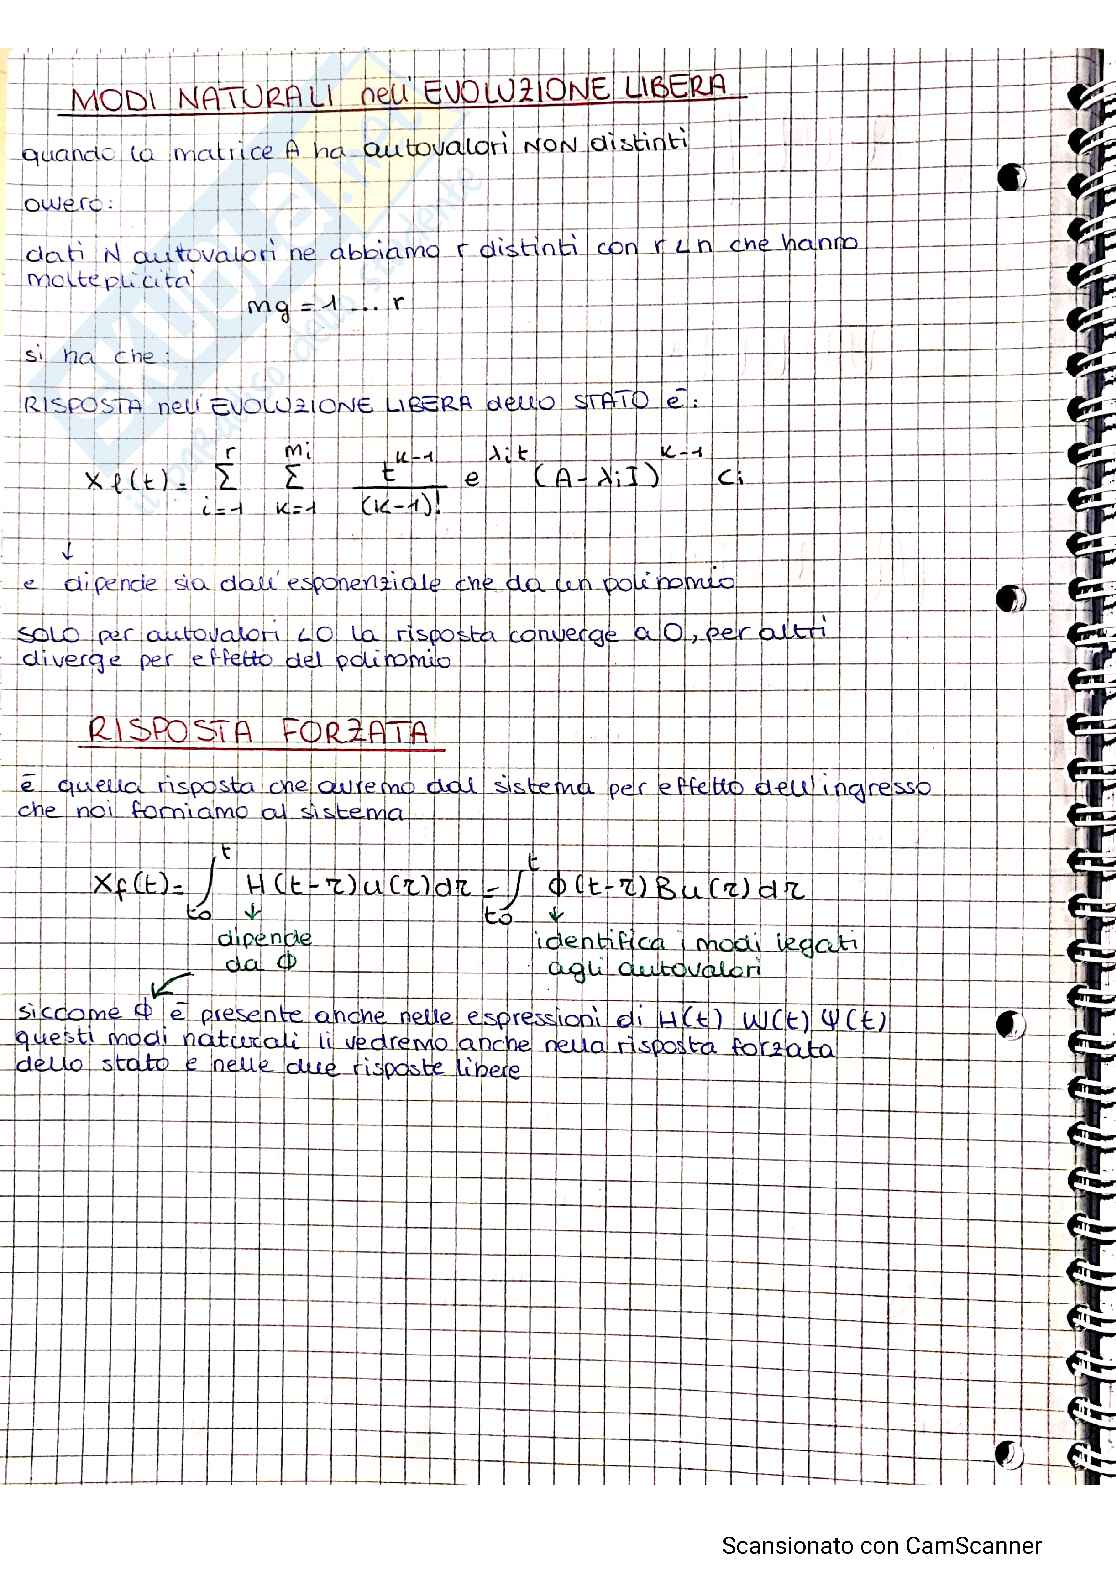 MODI NATURALI nell'EVOLUZIONE LIBERA
quando la matrice A ha autovalori NON distinti
ovvero:
dati N autovalori ne abbiamo r distinti con r < n che hanno
molteplicita'
mg = 1 ... r
si ha che:
RISPOSTA nell'EVOLUZIONE LIBERA dello STATO è:
Xl(t) = Σ_{i=1}^{r} Σ_{k=1}^{mi} t^{k-1}/(k-1)! e^{λit} (A-λiI)^{k-1} Ci
↓
e dipende sia dall'esponenziale che da un polinomio
SOLO per autovalori <0 la risposta converge a 0, per altri
diverge per effetto del polinomio
RISPOSTA FORZATA
è quella risposta che avremo dal sistema per effetto dell'ingresso
che noi forniamo al sistema
Xf(t) = ∫_{t0}^{t} H(t-τ)u(τ)dτ = ∫_{t0}^{t} Φ(t-τ)Bu(τ)dτ
↓ ↓
dipende identifica i modi legati
da Φ agli autovalori
siccome Φ è presente anche nelle espressioni di H(t) W(t) Ψ(t)
questi modi naturali li vedremo anche nella risposta forzata
dello stato e nelle due risposte libere
Scansionato con CamScanner